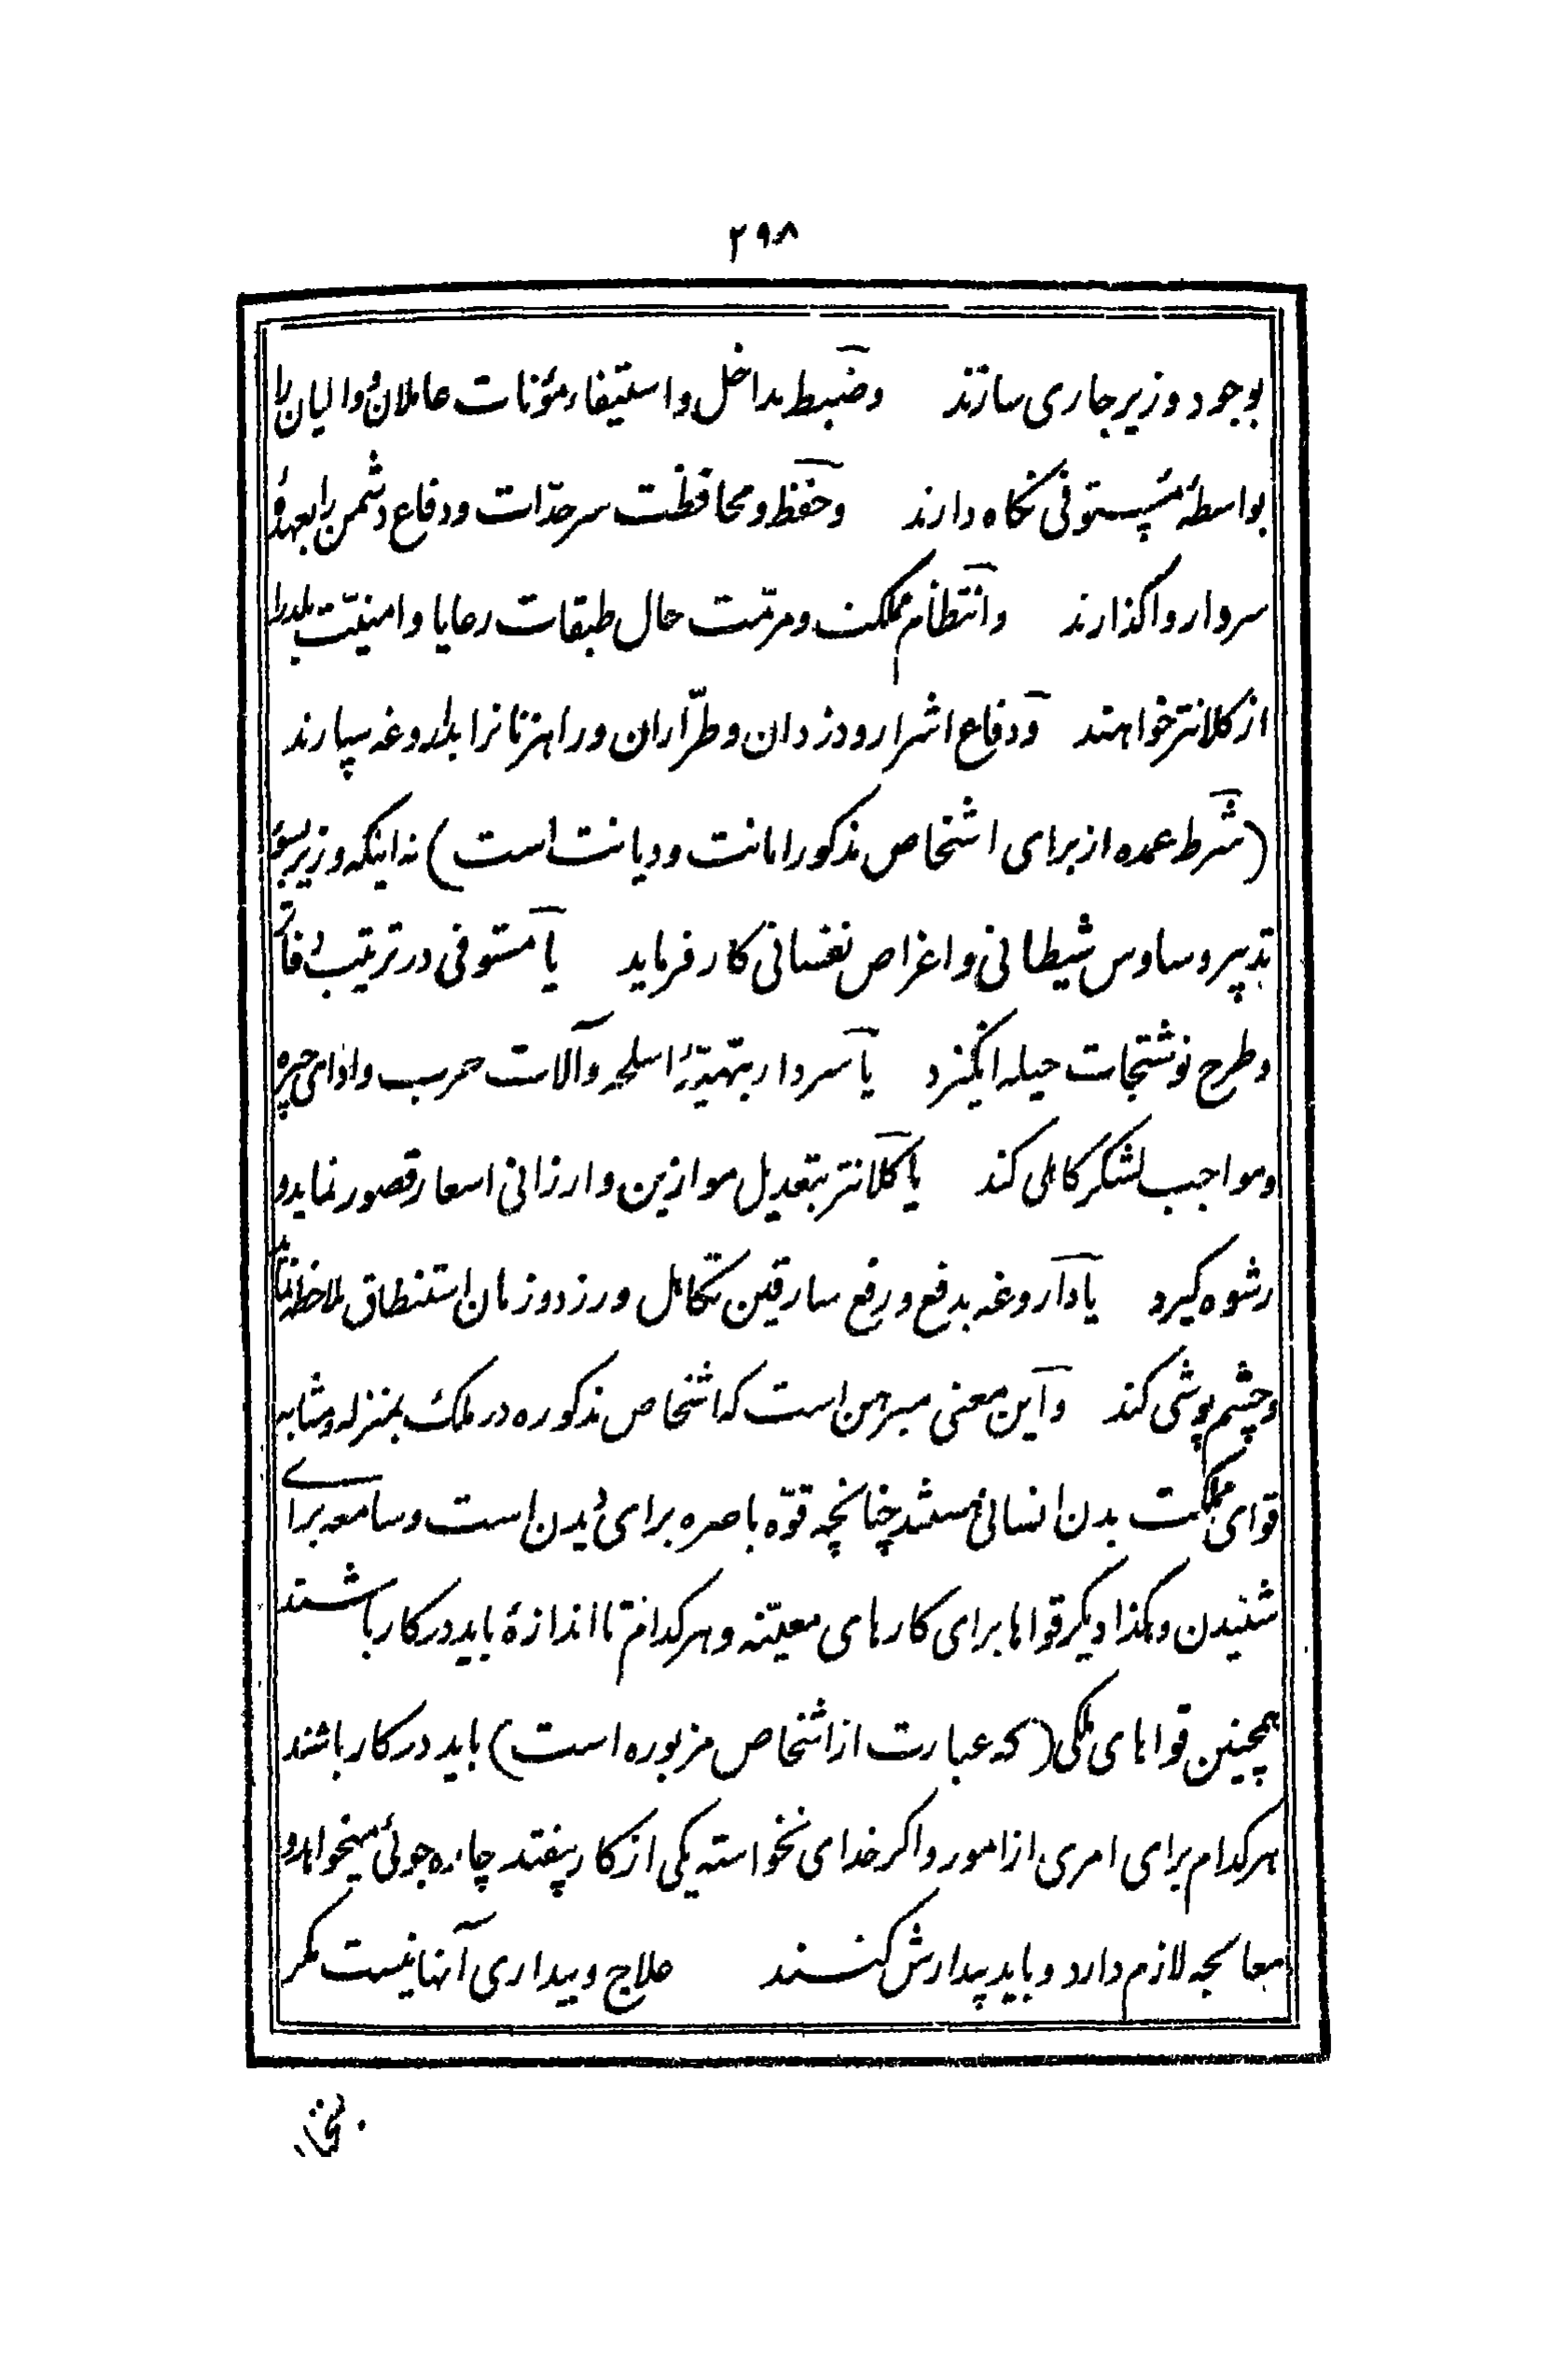 ۲۹۸
بوجود وزیر جاری سازند وضبط مداخل و استیفاء مؤنات عاملان و والیان را
بواسطۀ مستوفی نگاه دارند وحفظ و محافظت سرحدّات و دفاع دشمن را بعهدۀ
سردار واگذارند وانتظام مملکت و مرمّت حال طبقات رعایا و امنیّت بلد را
از کلانتر خواهند ودفاع اشرار و دزدان و طرّاران و راهزنانرا بداروغه سپارند
(شرط عمده از برای اشخاص مذکور امانت و دیانت است) نه اینکه وزیر بسوء
تدبیر وساوس شیطانی و اغراض نفسانی کار فرماید یا مستوفی در ترتیب دفاتر
و طرح نوشتجات حیله انگیزد یا سردار بتهیّۀ اسلحه و آلات حرب و ادای جیره
و مواجب لشکر کاهلی کند یا کلانتر بتعدیل موازین و ارزانی اسعار قصور نماید و
رشوه گیرد یا داروغه بدفع و رفع سارقین تکاهل ورزد و زمان استنطاق ملاحظه نماید
و چشم پوشی کند واین معنی مبرهن است که اشخاص مذکوره در ملک بمنزله و مثابه
قوای مملکت بدن انسانی هستند چنانچه قوّه باصره برای دیدن است و سامعه برای
شنیدن و هکذا دیگر قواها برای کارهای معیّنه و هر کدام تا اندازۀ باید در کار باشند
همچنین قواهای ملکی (که عبارت از اشخاص مزبوره است) باید در کار باشند
هر کدام برای امری از امور و اگر خدای نخواسته یکی از کار بیفتد چاره جوئی میخواهد و
معالجه لازم دارد و باید بیدارش کنند علاج و بیداری آنها نیست مگر